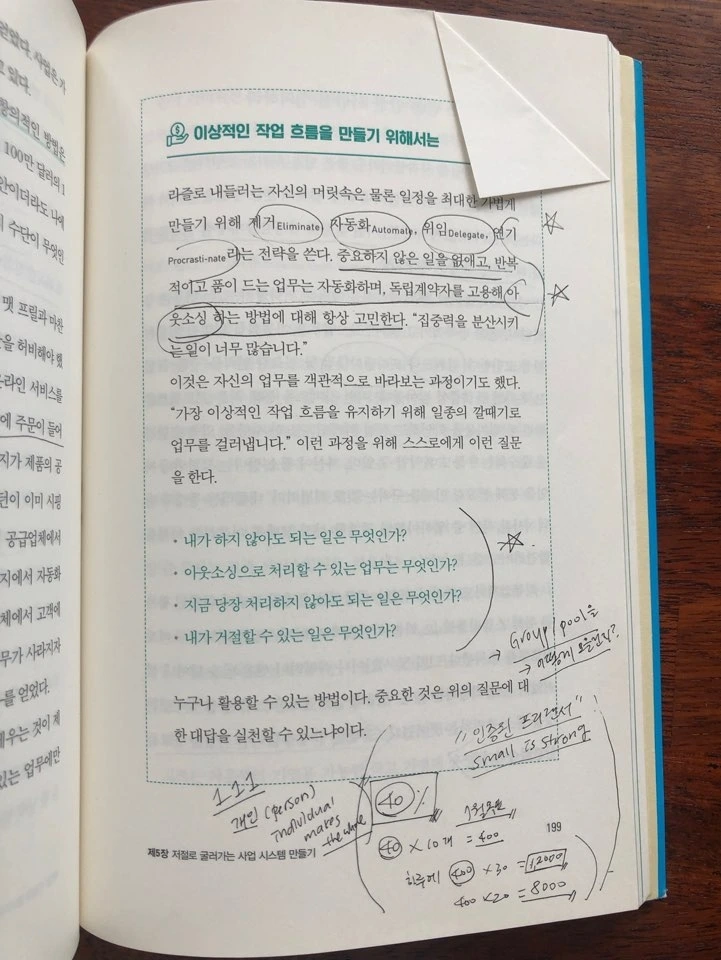 얻었다. 사업은 가
고 있다.
 100만 달러의 1
안이더라도 나에
 수단이 무엇인
 맷 프릴과 미찬
 허비해야 했
 서비스를
에 주문이 들어
지가 제품의 공
턴이 이미 시핑
 공급업체에서
지에서 자동화
체에서 고객에
무가 사라지자
를 얻었다.
배우는 것이 제
있는 업무에만
이상적인 작업 흐름을 만들기 위해서는
라즐로 내들러는 자신의 머릿속은 물론 일정을 최대한 가볍게
만들기 위해 제거Eliminate, 자동화Automate, 위임Delegate, 연기
Procrasti-nate라는 전략을 쓴다. 중요하지 않은 일을 없애고, 반복
적이고 품이 드는 업무는 자동화하며, 독립계약자를 고용해 아
웃소싱 하는 방법에 대해 항상 고민한다. “집중력을 분산시키
는 일이 너무 많습니다.”
이것은 자신의 업무를 객관적으로 바라보는 과정이기도 했다.
“가장 이상적인 작업 흐름을 유지하기 위해 일종의 깔때기로
업무를 걸러냅니다.” 이런 과정을 위해 스스로에게 이런 질문
을 한다.
• 내가 하지 않아도 되는 일은 무엇인가?
• 아웃소싱으로 처리할 수 있는 업무는 무엇인가?
• 지금 당장 처리하지 않아도 되는 일은 무엇인가?
• 내가 거절할 수 있는 일은 무엇인가?
→ Group/pool을
→ 어떻게 모을런지?
누구나 활용할 수 있는 방법이다. 중요한 것은 위의 질문에 대
한 대답을 실천할 수 있느냐이다.
"인증된 프리랜서"!
small is strong
1.1.1
개인 (person)
individual
makes
the whole
40 %
40 × 10개 = 400
하루에 400 × 30 = 12000
400 × 20 = 8000
199
제5장 저절로 굴러가는 사업 시스템 만들기